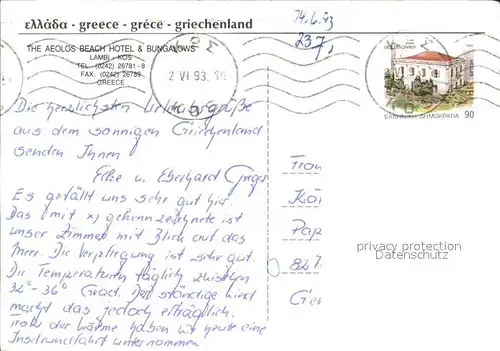 ελλάδα - greece - gréce - griechenland
THE AEOLOS BEACH HOTEL & BUNGALOWS
LAMBI - KOS
TEL.: (0242) 26781 - 8
FAX: (0242) 26789
GREECE
ΚΩΣ
2 VI 93
237,
90
ΕΛΛΗΝΙΚΗ ΔΗΜΟΚΡΑΤΙΑ
Die herzlichsten Urlaubsgrüße
aus dem sonnigen Griechenland
senden Ihnen
Elke u. Eberhard
Es gefällt uns sehr gut hier.
Das mit x) gekennzeichnete ist
unser Zimmer mit Blick auf das
Meer. Die Verpflegung ist sehr gut.
Die Temperaturen täglich zwischen
32°-36° Grad. Der ständige Wind
macht das jedoch erträglich.
Trotz der Wärme haben wir heute eine
Inselrundfahrt unternommen
privacy protection
Datenschutz